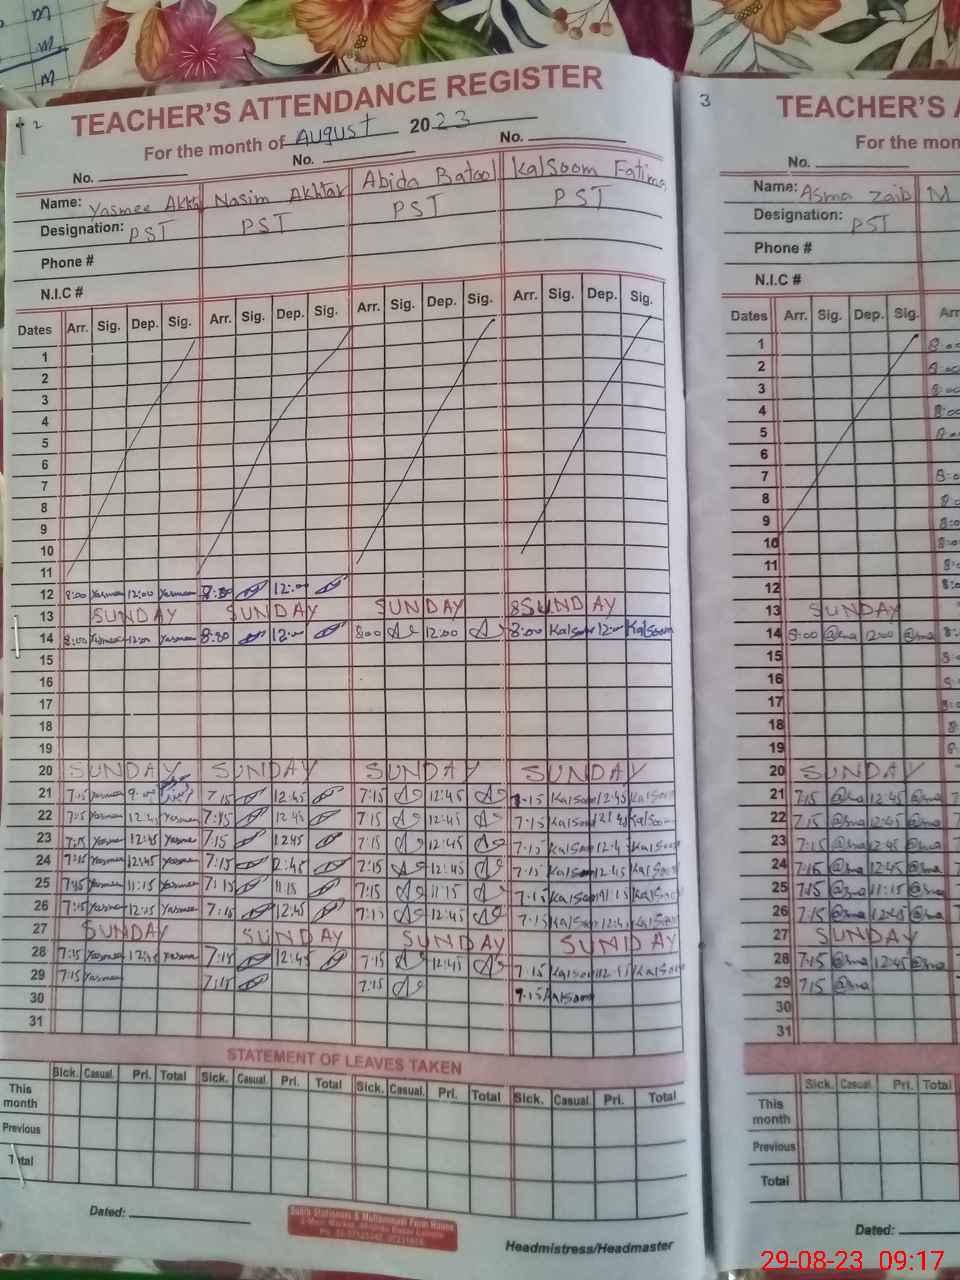 m
m
m
2
TEACHER'S ATTENDANCE REGISTER
For the month of August 2023
No. No. No.
Name: Yasmee Akh Nasim Akhtar Abida Batool Kalsoom Fatima
Designation: PST PST PST PST
Phone #
N.I.C #
Dates Arr. Sig. Dep. Sig. Arr. Sig. Dep. Sig. Arr. Sig. Dep. Sig. Arr. Sig. Dep. Sig.
1
2
3
4
5
6
7
8
9
10
11
12 8:00 Yasmee 12:00 Yasmee 12:00
13 SUNDAY SUNDAY SUNDAY SUNDAY
14 8:00 Yasmee 12:00 Yasmee 8:00 12:00 800 12:00 8:00 Kalsoom 12:00 Kalsoom
15
16
17
18
19
20 SUNDAY SUNDAY SUNDAY SUNDAY
21 7:15 Yasmee 7:15 12:45 7:15 12:45 7:15 Kalsoom 12:45 Kalsoom
22 7:15 Yasmee 12:45 Yasmee 7:15 12:45 7:15 12:45 7:15 Kalsoom Kalsoom
23 7:15 Yasmee 12:45 Yasmee 7:15 12:45 7:15 12:45 7:15 Kalsoom 12:45 Kalsoom
24 7:15 Yasmee 12:45 Yasmee 7:15 12:45 7:15 12:45 7:15 Kalsoom 12:45 Kalsoom
25 7:15 Yasmee 11:15 Yasmee 7:15 11:15 7:15 11:15 7:15 Kalsoom 11:15 Kalsoom
26 7:15 Yasmee Yasmee 7:15 12:45 7:15 12:45 7:15 Kalsoom 12:45 Kalsoom
27 SUNDAY SUNDAY SUNDAY SUNDAY
28 7:15 Yasmee 12:45 Yasmee 7:15 12:45 7:15 12:45 7:15 Kalsoom 12:45 Kalsoom
29 7:15 Yasmee 7:15 7:15 7:15 Kalsoom
30
31
STATEMENT OF LEAVES TAKEN
Sick. Casual. Pri. Total Sick. Casual. Pri. Total Sick. Casual. Pri. Total Sick. Casual. Pri. Total
This month
Previous
Total
Dated:
Headmistress/Headmaster
3
TEACHER'S A
For the mon
No.
Name: Asma Zaib M
Designation: PST
Phone #
N.I.C #
Dates Arr. Sig. Dep. Sig. Arr
1 8:00
2 8:00
3 8:00
4 8:00
5
6
7 8:0
8
9 8:0
10 8:0
11
12
13 SUNDAY
14 8:00 @sma 12:00 @sma 8:
15
16
17
18
19
20 SUNDAY
21 7:15 @sma 12:45 @sma
22 7:15 @sma 12:45 @sma
23 7:15 @sma 12:45 @sma
24 7:15 @sma 12:45 @sma
25 7:15 @sma 11:15 @sma
26 7:15 @sma 12:45 @sma
27 SUNDAY
28 7:15 @sma 12:45 @sma
29 7:15 @sma
30
31
Sick. Casual. Pri. Total
This month
Previous
Total
Dated:
29-08-23 09:17